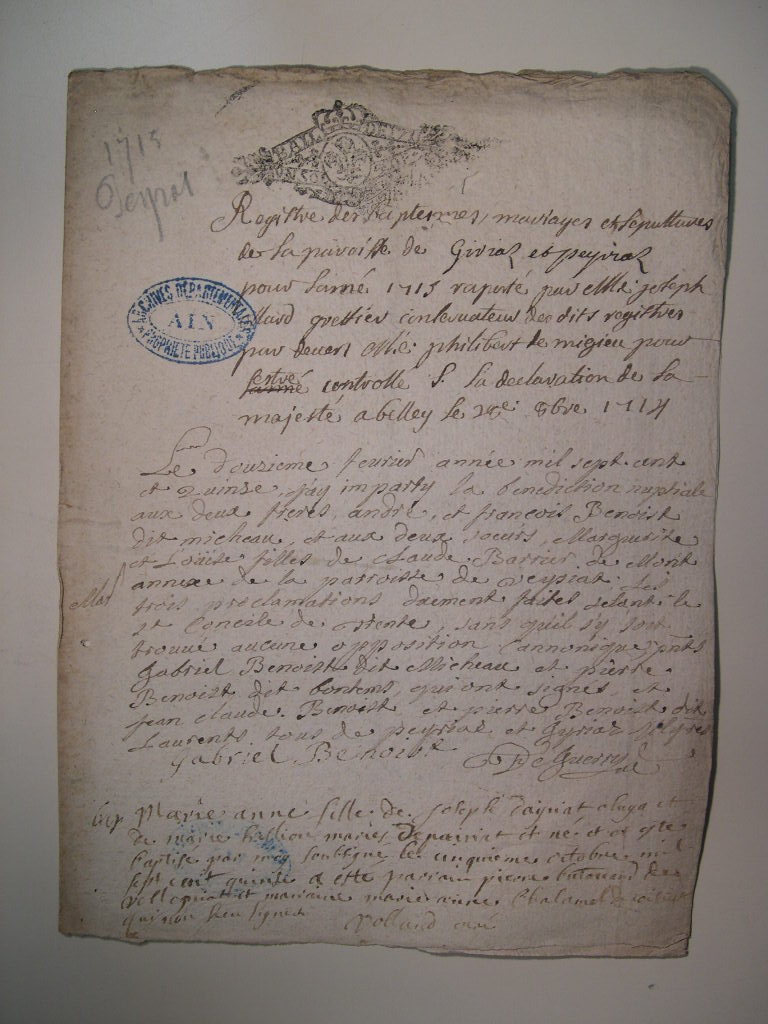 1715
Peyriat
Registre des baptesmes, mariages et sepultures
de la paroisse de Giriaz et peyriaz
pour lanné 1715 raporté par Me. joseph
greffier conservateur des dits registres
par devers Me. philibert de migieu pour
estre controllé S. la declaration de sa
majesté a belley le 8bre 1714
ARCHIVES DÉPARTEMENTALES
AIN
PROPRIÉTÉ PUBLIQUE
Le douzieme fevrier année mil sept cent
et Quinze, j'ay imparty la benediction nuptiale
aux deux frères, andré, et françois Benoist
dit micheau, et aux deux soeurs, Marguerite
et Louise filles de Claude Barrier de Mont
annexe de la parroisse de veyziat. Les
Mar trois proclamations duement faites selont le
st Concile de trente, sans quil s'y soit
trouué aucune opposition cannonique, pnts
Gabriel Benoist dit Micheau et pierre
Benoist dit bontems, qui ont signés, et
jean claude Benoist et pierre Benoist dit
Laurents, tous de peyriaz et Gyriaz
Gabriel Benoist DeGuerry
Marie anne fille de joseph et
de marie mariés de peiriat et né et a este
baptisé par moy soubsigné le cinquieme octobre mil
sept cent quinse a esté parrain pierre de
et marraine marie anne Chalamel
qui non sceu signer
Volland curé